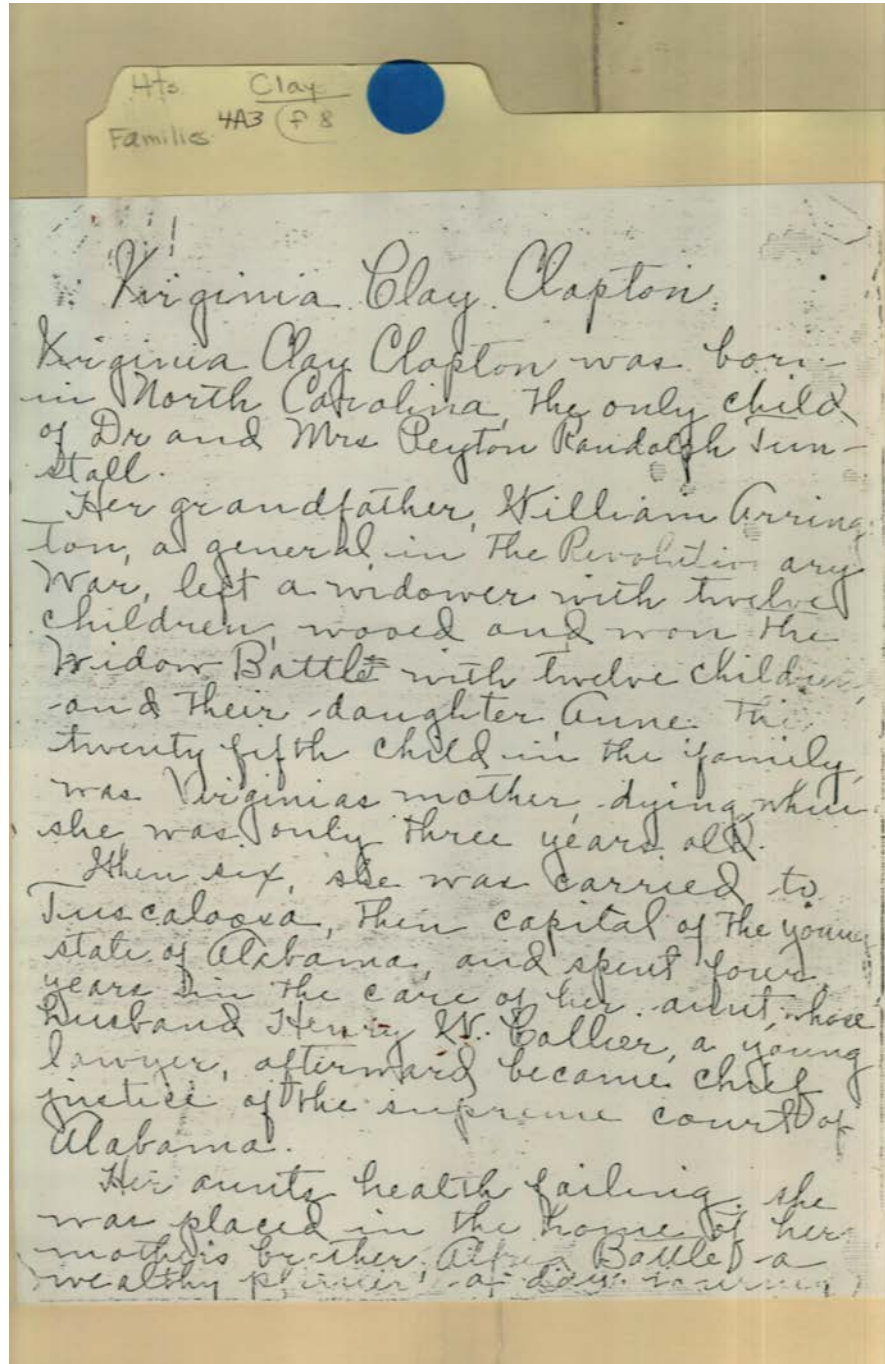 Hts. Clay
4A3 (f 8
Families
Virginia Clay Clapton.
Virginia Clay Clapton was born
in North Carolina, the only child
of Dr and Mrs Peyton Randolph Tun-
stall.
Her grandfather, William Arring
ton, a general in the Revolution ary
War, left a widower with twelve
children, wooed and won the
Widow Battle with twelve children,
and their daughter, Anne. The
twenty fifth child in the family,
was Virginias mother, dying when
she was only three years old.
When six, she was carried to
Tuscaloosa, then capital of the young
state of Alabama, and spent four
years in the care of her aunt, whose
husband Henry W. Collier, a young
lawyer, afterward became chief
justice of the supreme court of
Alabama.
Her aunts health failing, she
was placed in the home of her
mother's brother Alfred Battle, a
wealthy planter, a